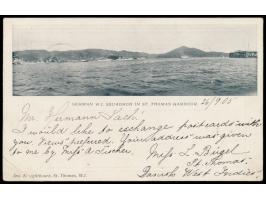 GERMAN W.I. SQUADRON IN ST. THOMAS HARBOUR.
26/9.05
Mr. Hermann Sach!
I would like to exchange postcards with
you "Views" prefered. Your address was given
to me by Miss A. Fischer.
Miss L. Bügel
St. Thomas.
Danish West Indies.
Lightbourn, St. Thomas, W.I.